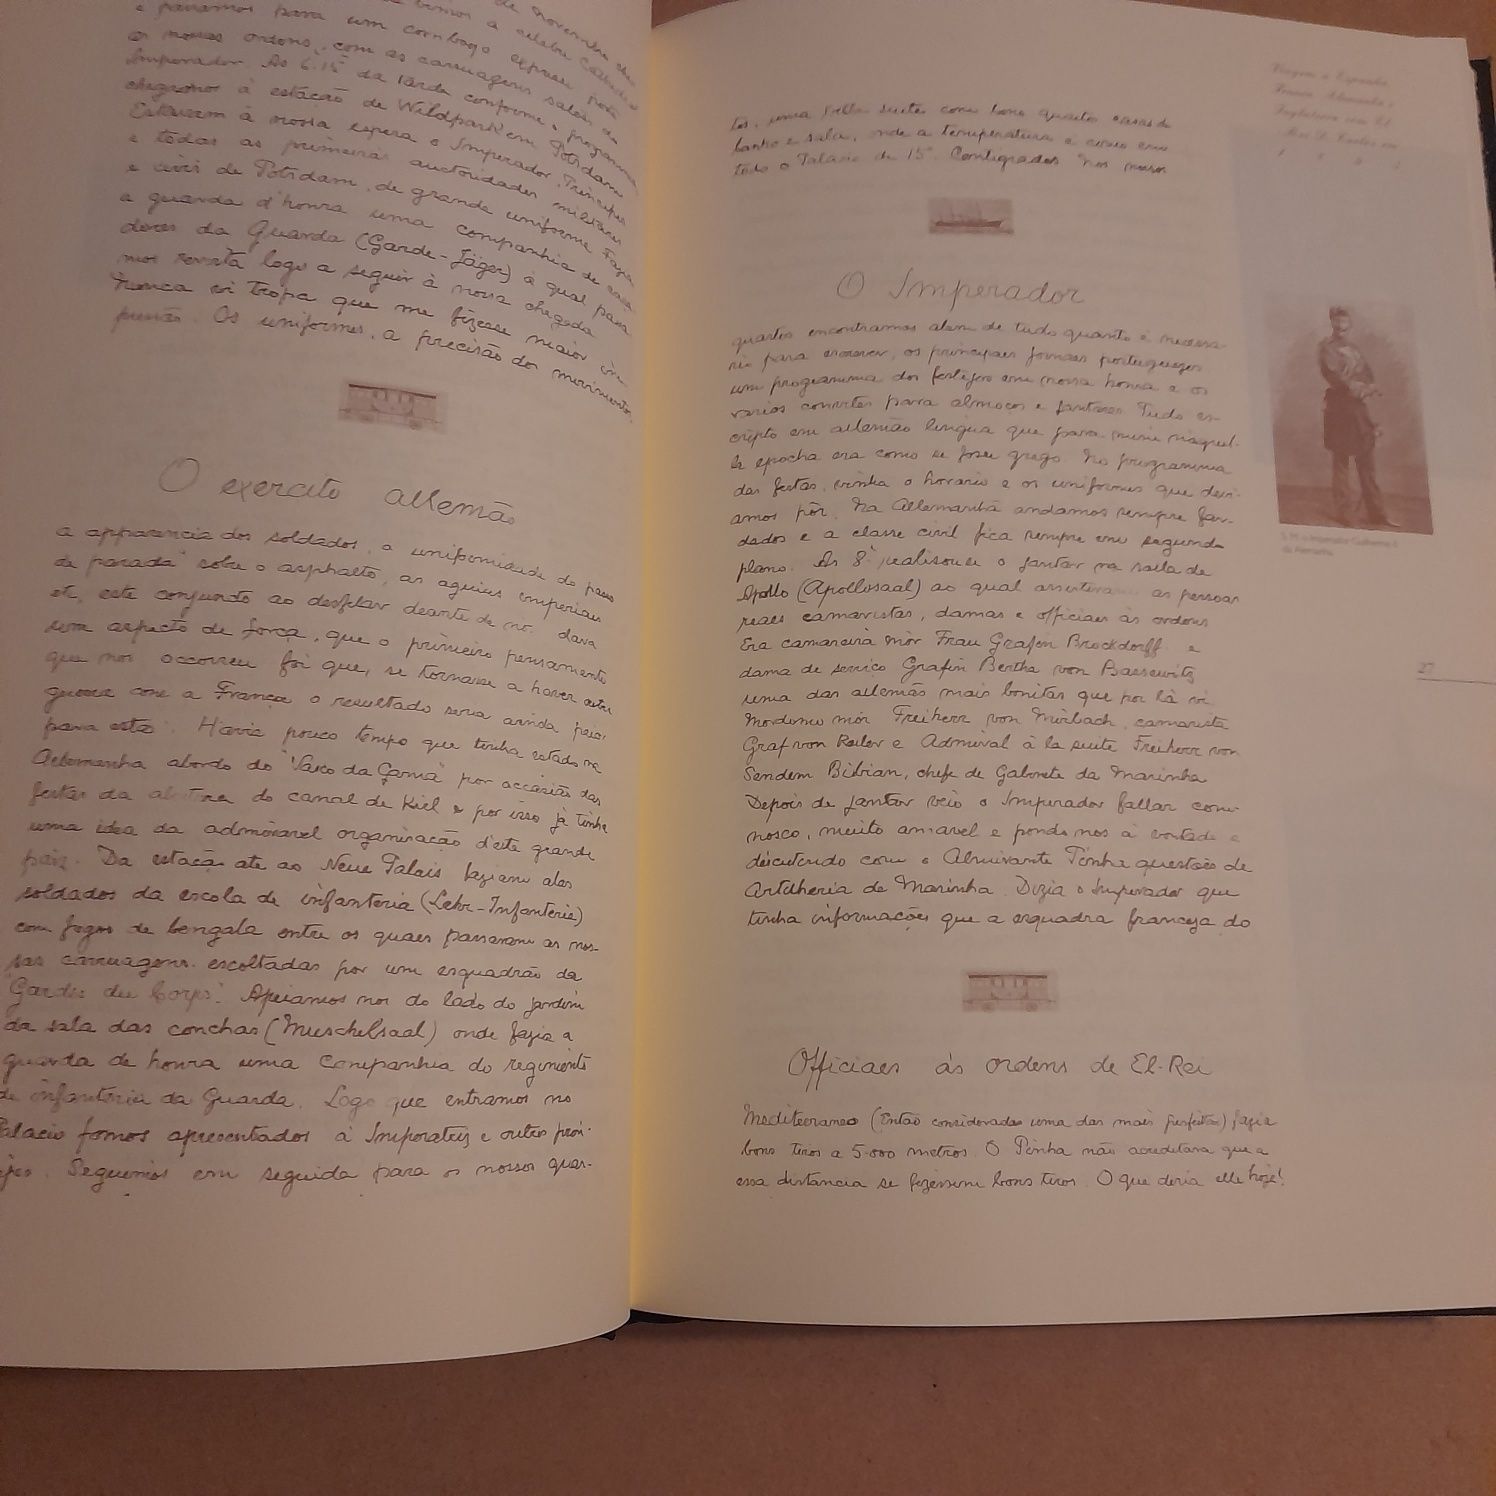 de novembro
e paramos para um comboyo especial posto
ás nossas ordens, com as carruagens salões do
Imperador. As 6.15 da tarde conforme o programma
chegamos á estação de Wildpark em Potsdam
Estavam á nossa espera o Imperador, Principes
e todas as primeiras auctoridades militares
e civis de Potsdam, de grande uniforme. Fazia
a guarda d'honra uma companhia de caça
dores da Guarda (Garde-Jäger) á qual passa
mos revista logo a seguir á nossa chegada
Nunca vi tropa que me fizesse maior im
pressão. Os uniformes, a precisão dos movimentos,
O exercito allemão
a apparencia dos soldados, a uniformidade do passo
de parada" sobre o asphalto, as aguias imperiaes
etc, este conjuncto ao desfilar deante de nós dava
um aspecto de força, que o primeiro pensamento
que nos occorreu foi que, se tornasse a haver outra
guerra com a França o resultado seria ainda peior
para esta. Havia pouco tempo que tinha estado na
Allemanha abordo do "Vasco da Gama" por occasião das
festas da abertura do canal de Kiel e por isso já tinha
uma idea da admiravel organisação d'este grande
paiz. Da estação ate ao Neue Palais faziam alas
soldados da escola de infanteria (Lehr-Infanterie)
com fogos de bengala entre os quaes passaram as nos-
sas carruagens escoltadas por um esquadrão da
"Gardes du Corps". Apeiamos nos do lado do jardim
da sala das conchas (Muschelsaal) onde fazia a
guarda de honra uma companhia do regimento
de infanteria da Guarda. Logo que entramos no
Palacio fomos apresentados á Imperatriz e outros prin-
cipes. Seguimos em seguida para os nossos quar-
tos, uma bella suite com bons quartos casas de
banho e sala, onde a temperatura é como em
todo o Palacio de 15°. Contiguados nos nossos
O Imperador
quartos encontramos alem de tudo quanto é necessa-
rio para escrever, os principaes jornaes portuguezes
um programma dos festejos em nossa honra e os
varios convites para almoços e jantares. Tudo es-
cripto em allemão lingua que para mim naquel-
la epocha era como se fosse grego. No programma
das festas, vinha o horario e os uniformes que deví-
amos pôr. Na Allemanha andamos sempre far-
dados e a classe civil fica sempre em segundo
plano. As 8h realisou-se o jantar na sala de
Apollo (Apollosaal) ao qual assistiram as pessoas
reaes camaristas, damas e officiaes ás ordens
Era camareira mór Frau Grafin Brockdorff e
dama de serviço Grafin Bertha von Bassewitz
uma das allemãs mais bonitas que por lá vi
Mordomo mór Freiherr von Mirbach, camarista
Graf von Keller e Admiral á la suite Freiherr von
Senden Bibian, chefe de Gabinete da Marinha
Depois de jantar veio o Imperador fallar com-
nosco, muito amavel e pondo nos á vontade e
discutindo com o Almirante Pinha questões de
Artilheria de Marinha. Dizia o Imperador que
tinha informações que a esquadra franceza do
Officiaes ás ordens de El-Rei
Mediterraneo (Então considerada uma das mais perfeitas) fazia
bons tiros a 5.000 metros. O Pinha não acreditava que a
essa distancia se fizessem bons tiros. O que diria elle hoje!
Viagem a Espanha
França Alemanha e
Inglaterra com El
Rei D. Carlos em
S. M. o Imperador Guilherme II
da Alemanha
27